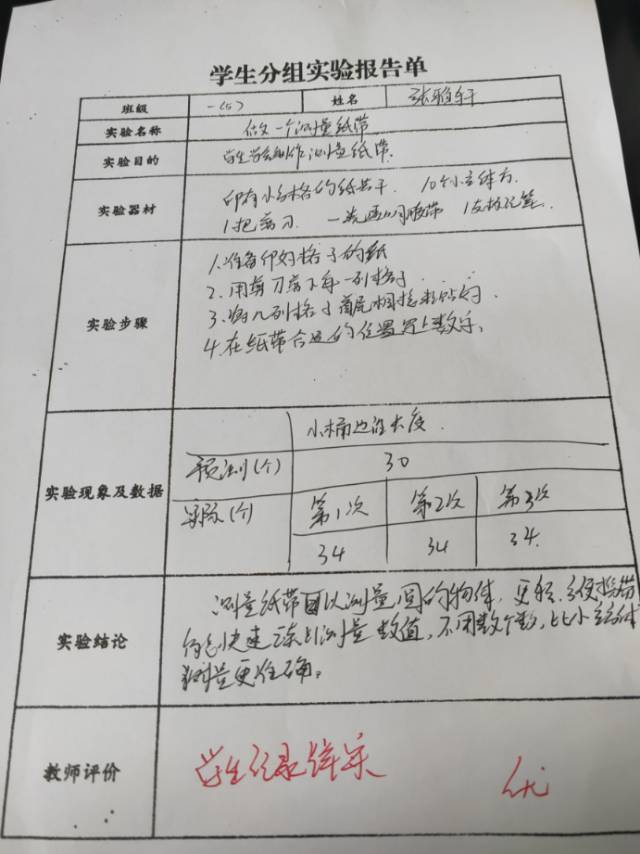 学生分组实验报告单
班级 一(5) 姓名 张雅轩
实验名称 做一个测量纸带
实验目的 学生学会制作测量纸带。
实验器材 印有小方格的纸若干 10个小立体方
1把剪刀 一卷 胶带 1支 笔
实验步骤 1.准备印好格子的纸
2.用剪刀剪下每一列格子
3.将几列格子首尾相接粘贴好
4.在纸带合适的位置写上数字。
实验现象及数据 小桶边沿长度
预测(个) 30
实际(个) 第1次 第2次 第3次
34 34 34
实验结论 测量纸带可以测量圆的物体,更轻,方便携带
能快速 测量数值,不用数个数,比小立方体
测量更准确。
教师评价 学生记录详实 优